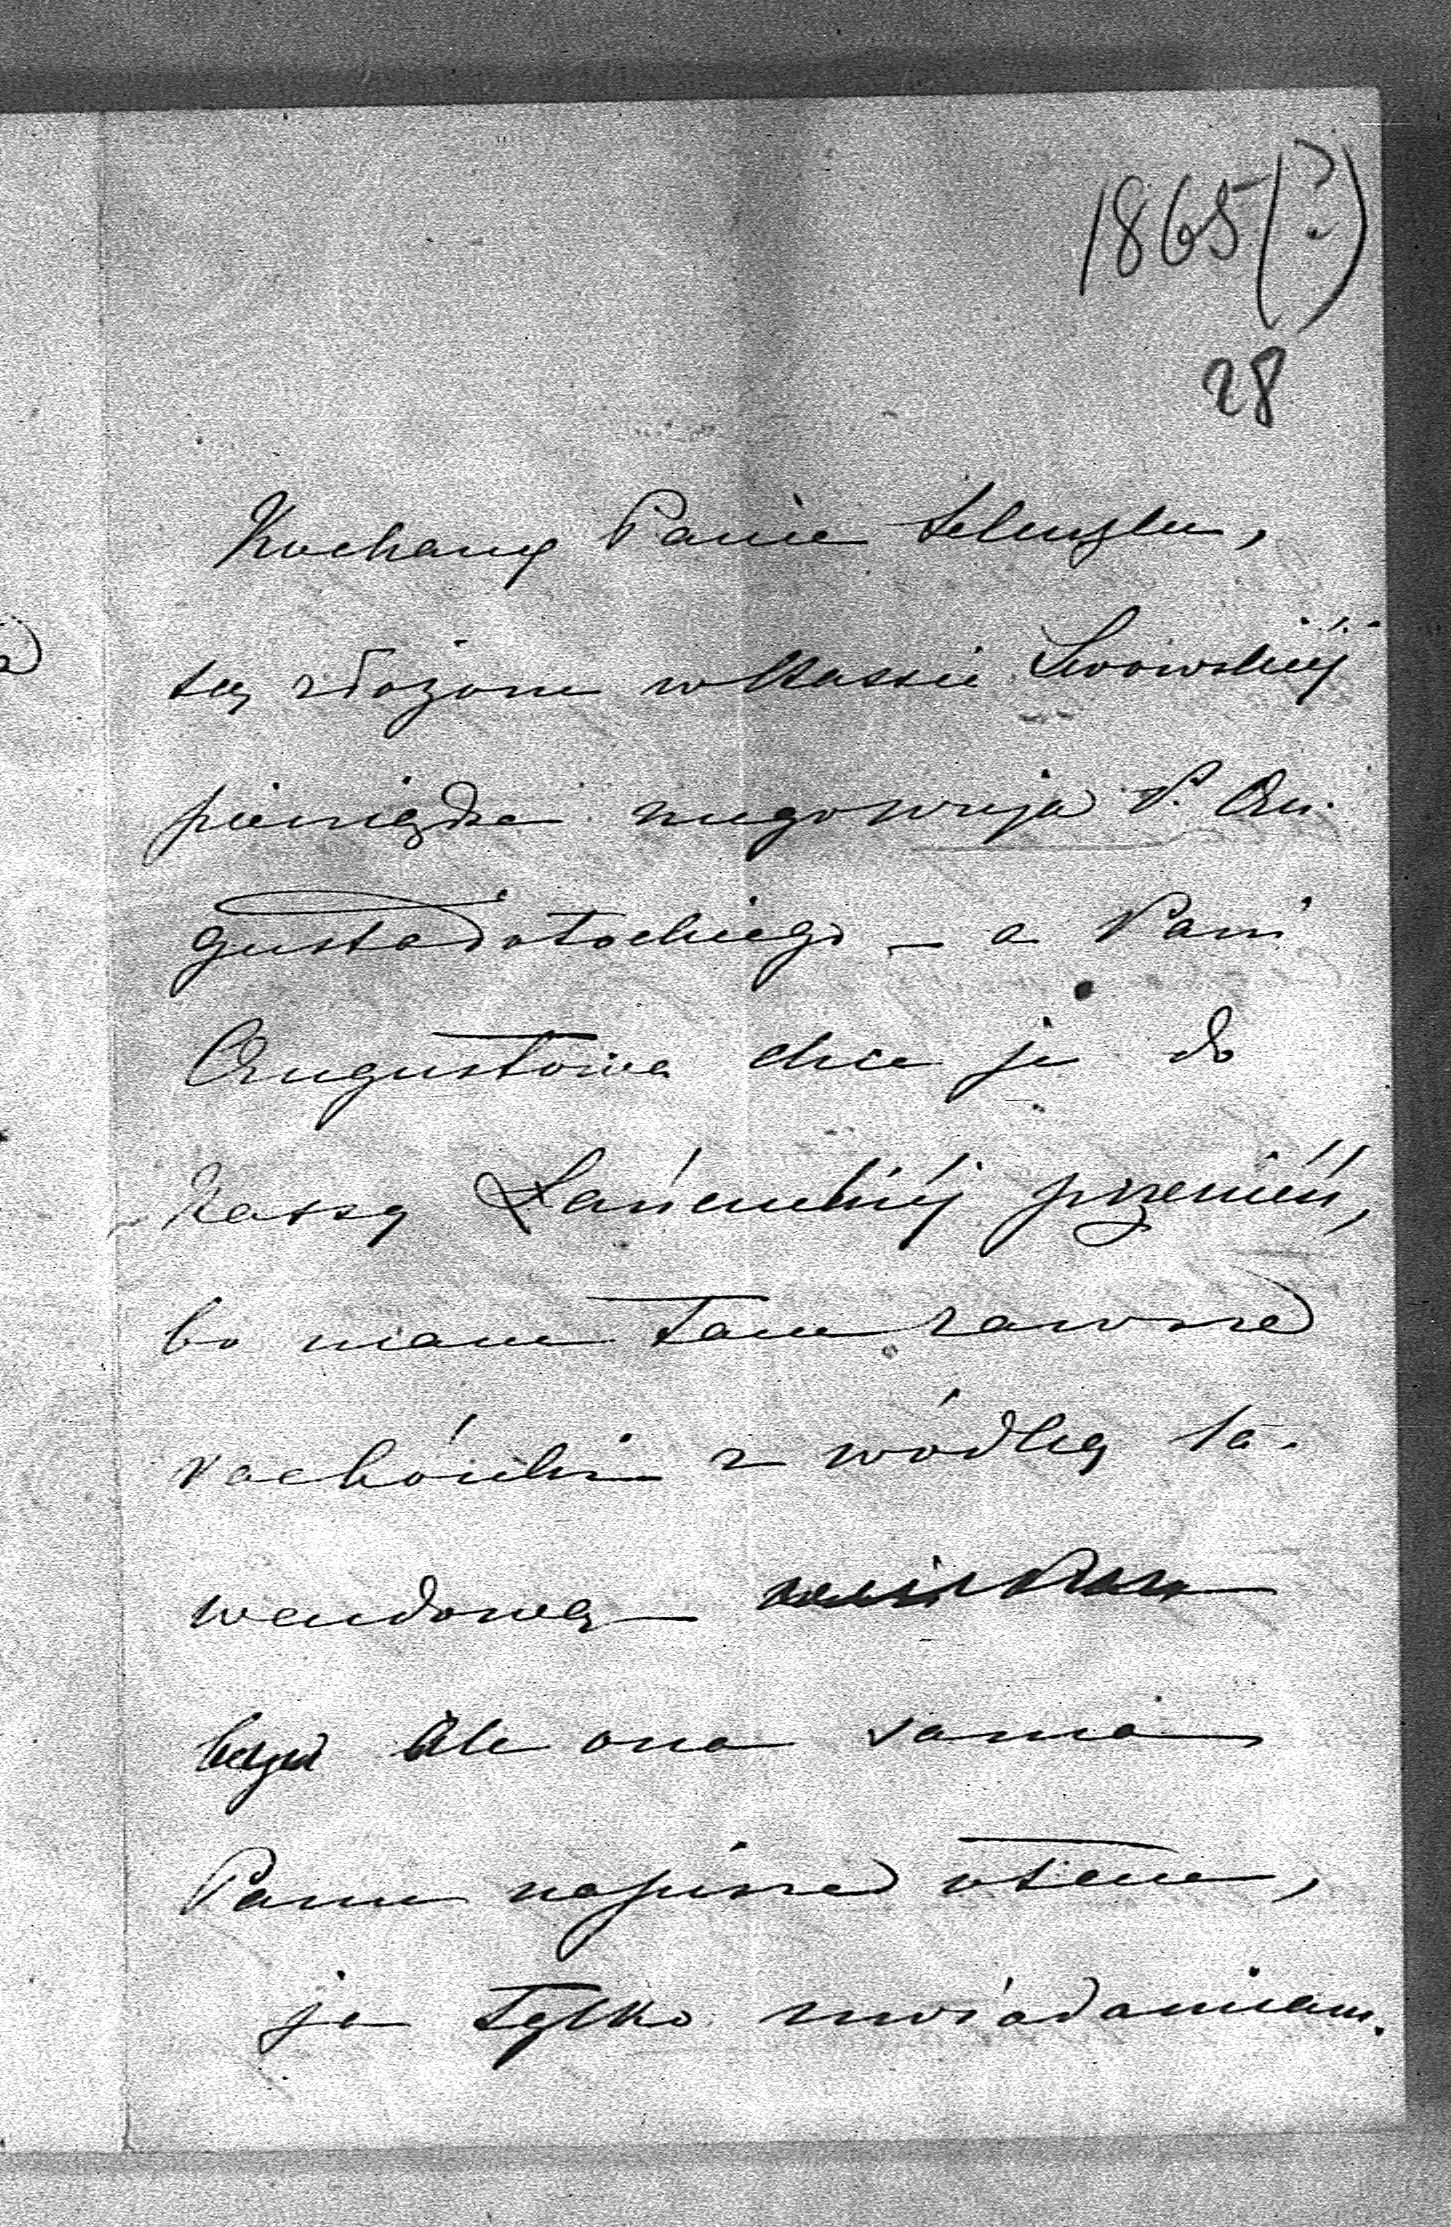 1865(?)
28
Kochany Panie Schuster,
są złożone w Kassie Lwowskiéj
pieniądze P. Au-
gusta Potockiego – a Pani
Augustowa chce je do
Kassy Łańcuckiéj przenieść,
bo mam tam zawsze
rachónki z wódką la-
wendową
Ale ona sama
Panu napisze o tem,
ja tylko uwiadamiam.